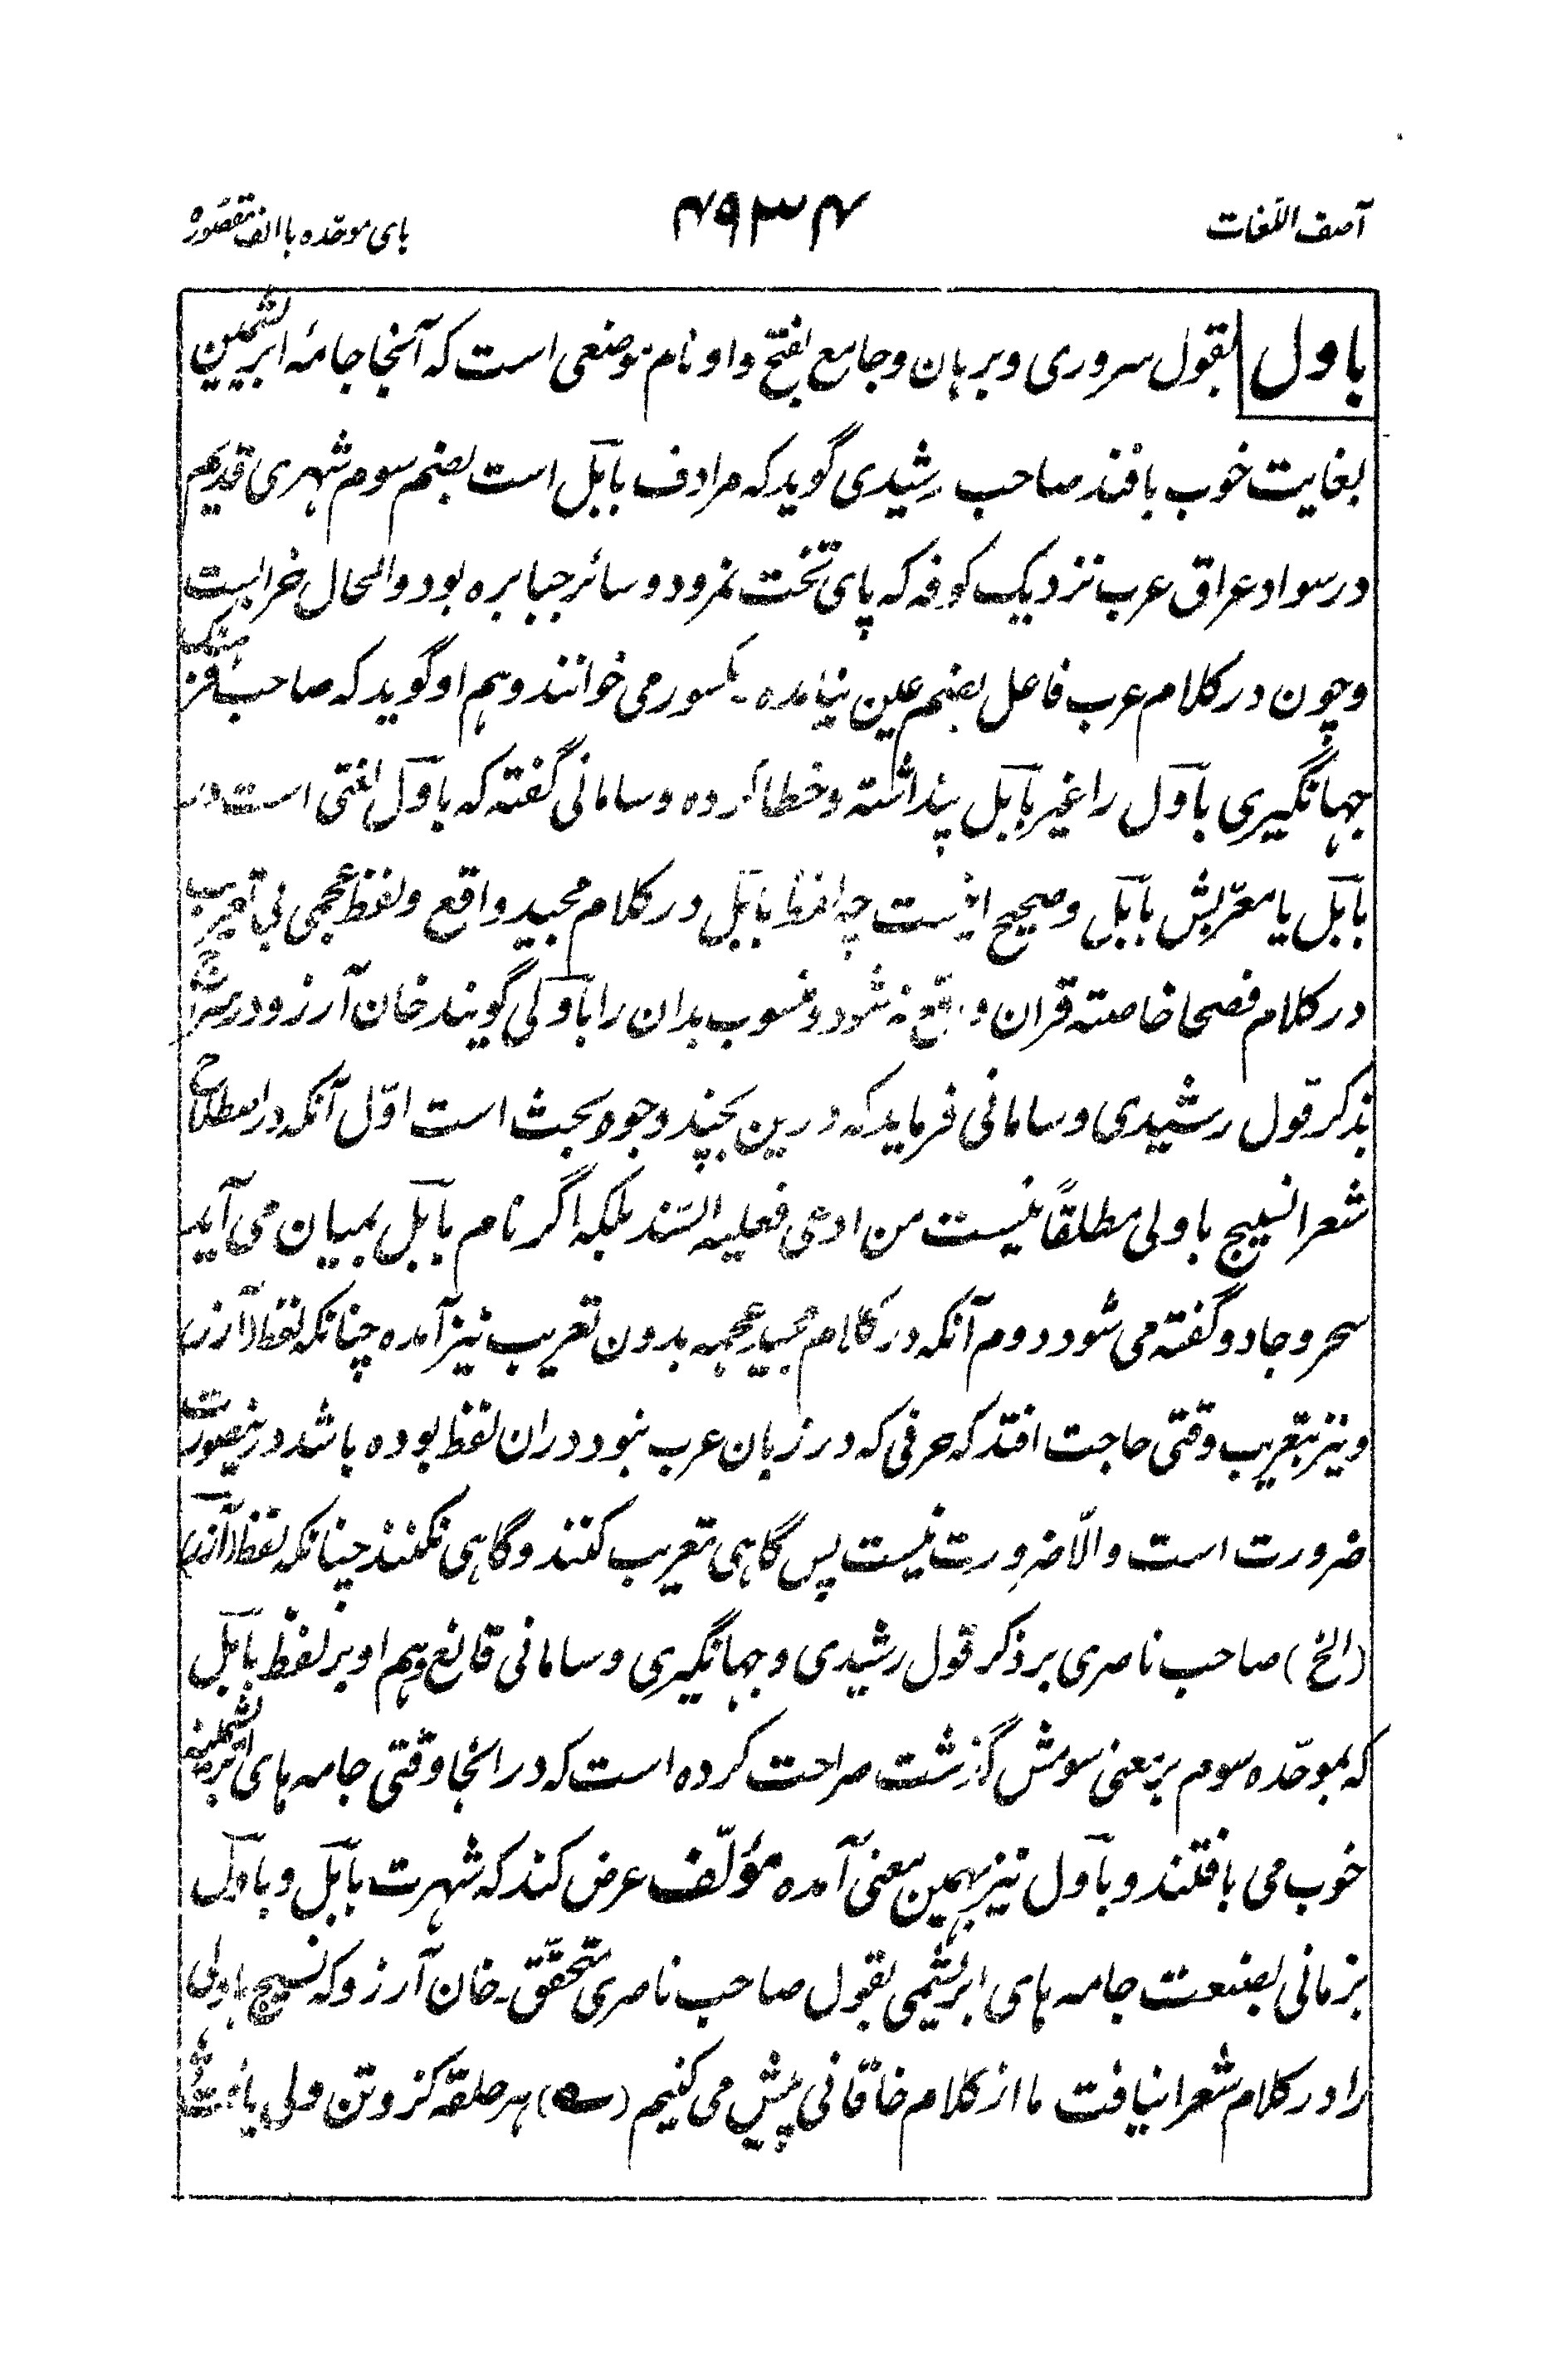 آصف اللّغات ۴۹۳۴ بای موحّده با الف مقصوره
باول بقول سروری و برهان و جامع بفتح واو نام موضعی است که آنجا جامۀ ابریشمین
بغایت خوب بافند صاحب رشیدی گوید که مرادف بابل است بضم سوم شهری قدیم
در سواد عراق عرب نزدیک کوفه که پای تخت نمرود و سائر جبابره بود و الحال خرابست
و چون در کلام عرب فاعل بضم عین نیامده ۔ بکسور می خوانند و هم او گوید که صاحب فرهنگ
جهانگیری باول را غیر بابل پنداشته و خطا کرده و سامانی گفته که باول لغتی است در
بابل یا معرّبش بابل و صحیح اینست چه لفظ بابل در کلام مجید واقع و لفظ عجمی بی تعریب
در کلام فصحا خاصته قران واقع نه شود و منسوب بدان را باولی گویند خان آرزو در سراج
بذکر قول رشیدی و سامانی فرماید که درین بچند وجوه بحث است اوّل آنکه در اصطلاح
شعرا نسیج باولی مطلقاً نیست من ادعی فعلیه السّند بلکه اگر نام بابل بمیان می آید
سحر و جادو گفته می شود دوم آنکه در کلام مجید عجمه بدون تعریب نیز آمده چنانکه لفظ (آزر)
و نیز بتعریب وقتی حاجت افتد که حرفی که در زبان عرب نبود دران لفظ بوده باشد درینصورت
ضرورت است و الّا ضرورت نیست پس گاهی تعریب کنند و گاهی نکنند چنانکه لفظ (آزر)
(الخ) صاحب ناصری بر ذکر قول رشیدی و جهانگیری و سامانی قانع و هم او بر لفظ بابل
که بموحّده سوم بر معنی سومش گزشت صراحت کرده است که در انجا وقتی جامه های ابریشمینه
خوب می بافتند و باول نیز بهمین معنی آمده مؤلّف عرض کند که شهرت بابل و باول
بزمانی بصنعت جامه های ابریشمی بقول صاحب ناصری متحقّق ۔ خان آرزو که نسیج باولی
را در کلام شعرا نیافت ما از کلام خاقانی پیش می کنیم (ے) هر حلقه کز و تن ولی یافت